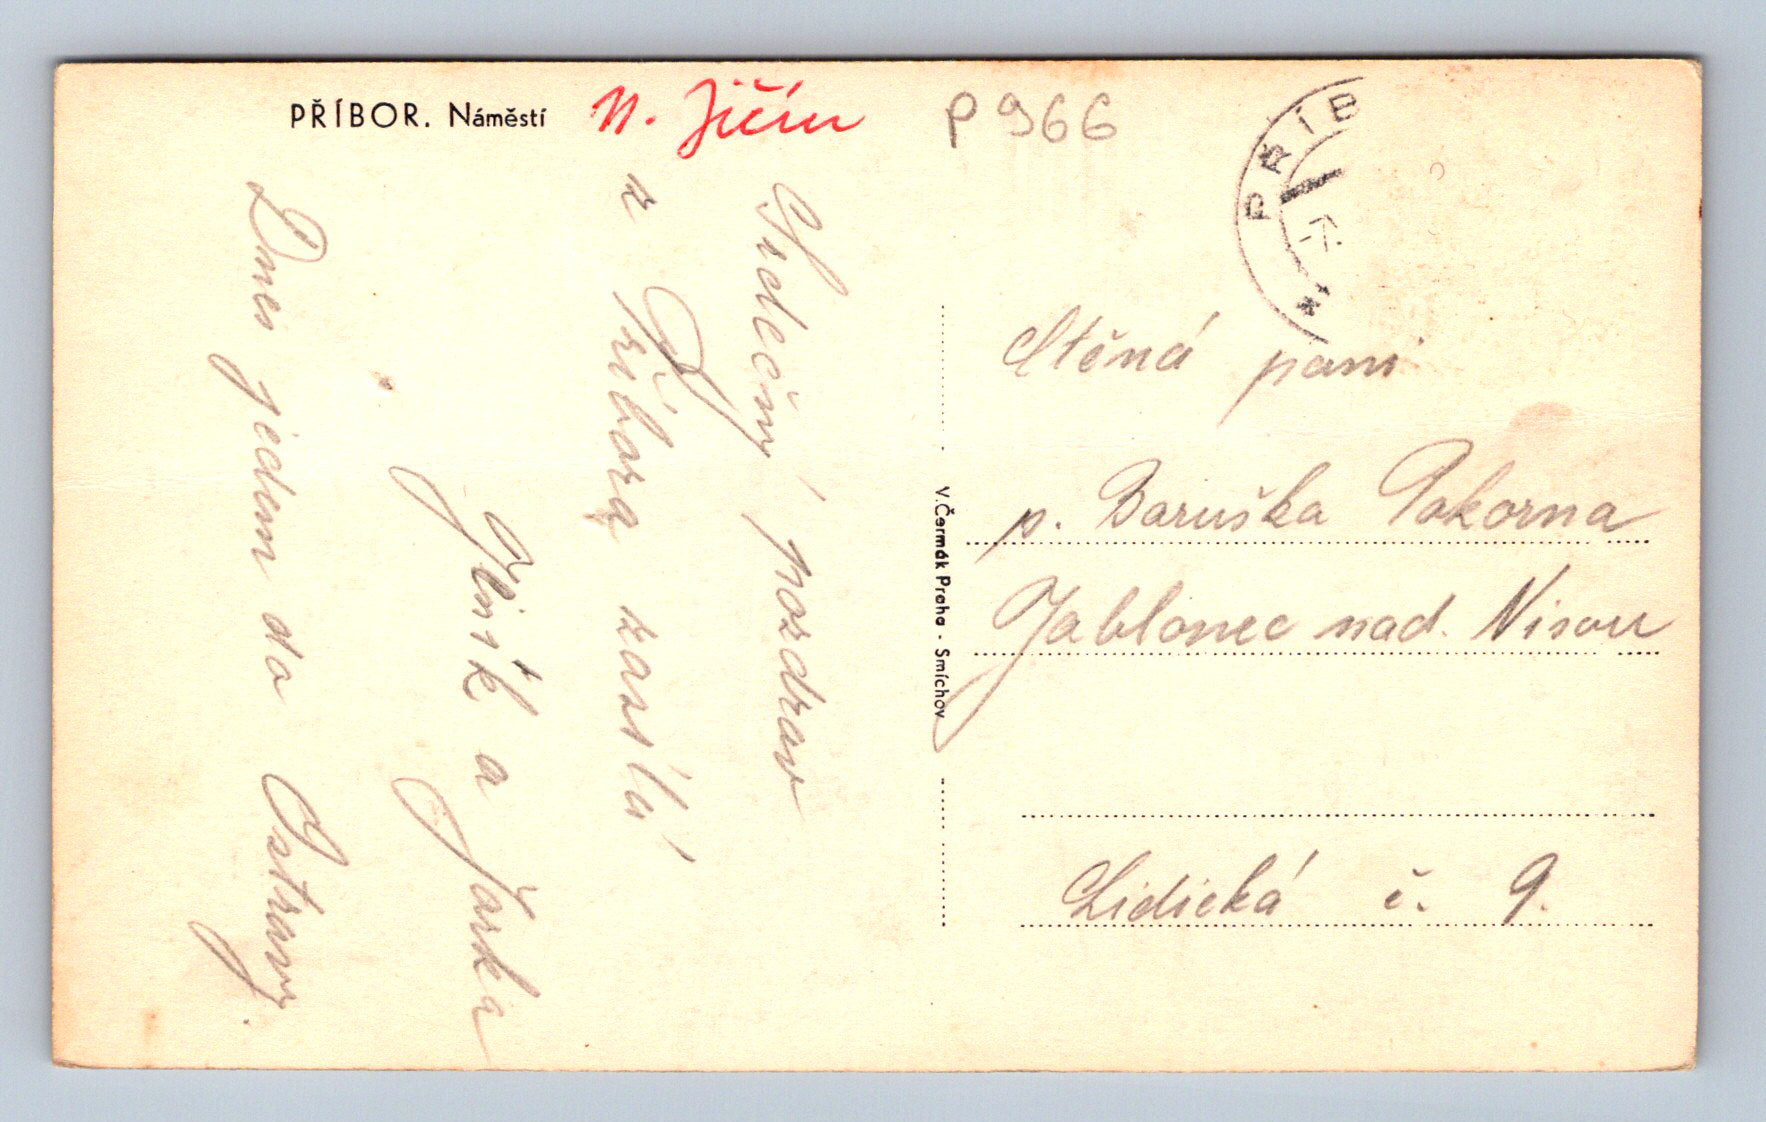 PŘÍBOR. Náměstí
N. Jičín
P 966
PŘÍB
7.
Srdečný pozdrav
z Příbora zasílá
Jeník a Jarka
Dnes jedem do Ostravy.
V. Čermák Praha - Smíchov
Ctěná paní
p. Baruška Pokorna
Jablonec nad. Nisou
Lidická č. 9.